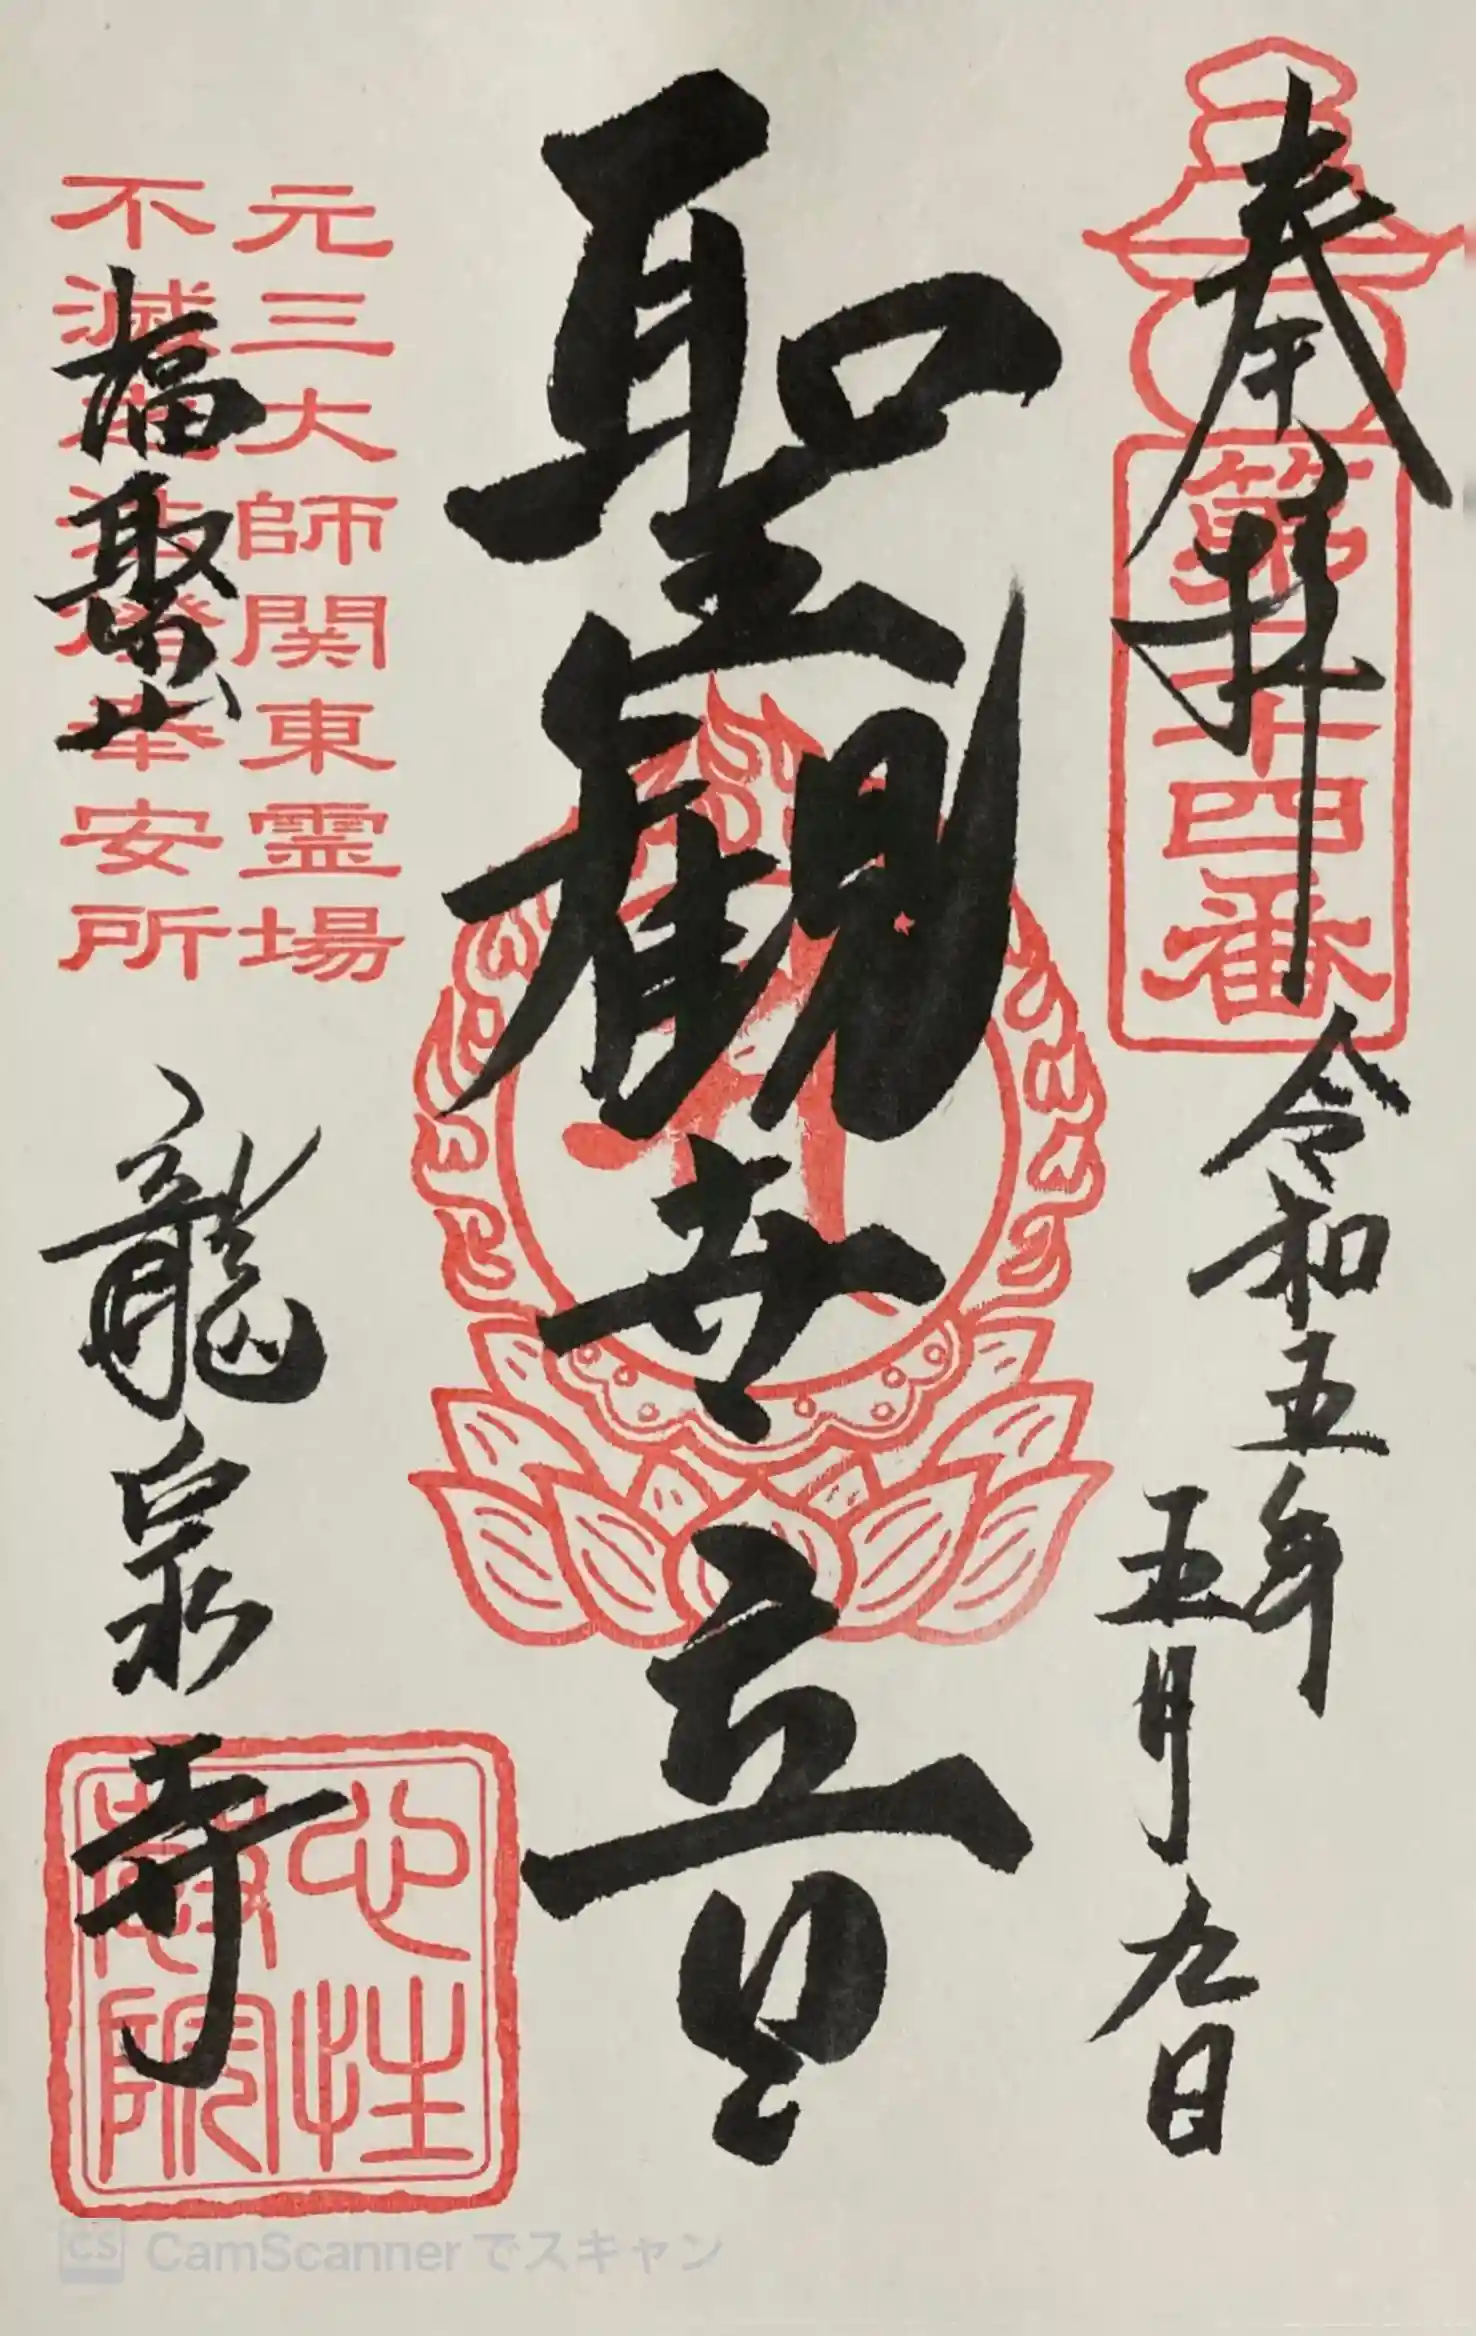 奉拝
第二十四番
令和五年
五月九日
聖観世音
元三大師関東霊場
不滅之法燈奉安所
福聚山
龍泉寺
心性
院
CamScanner でスキャン